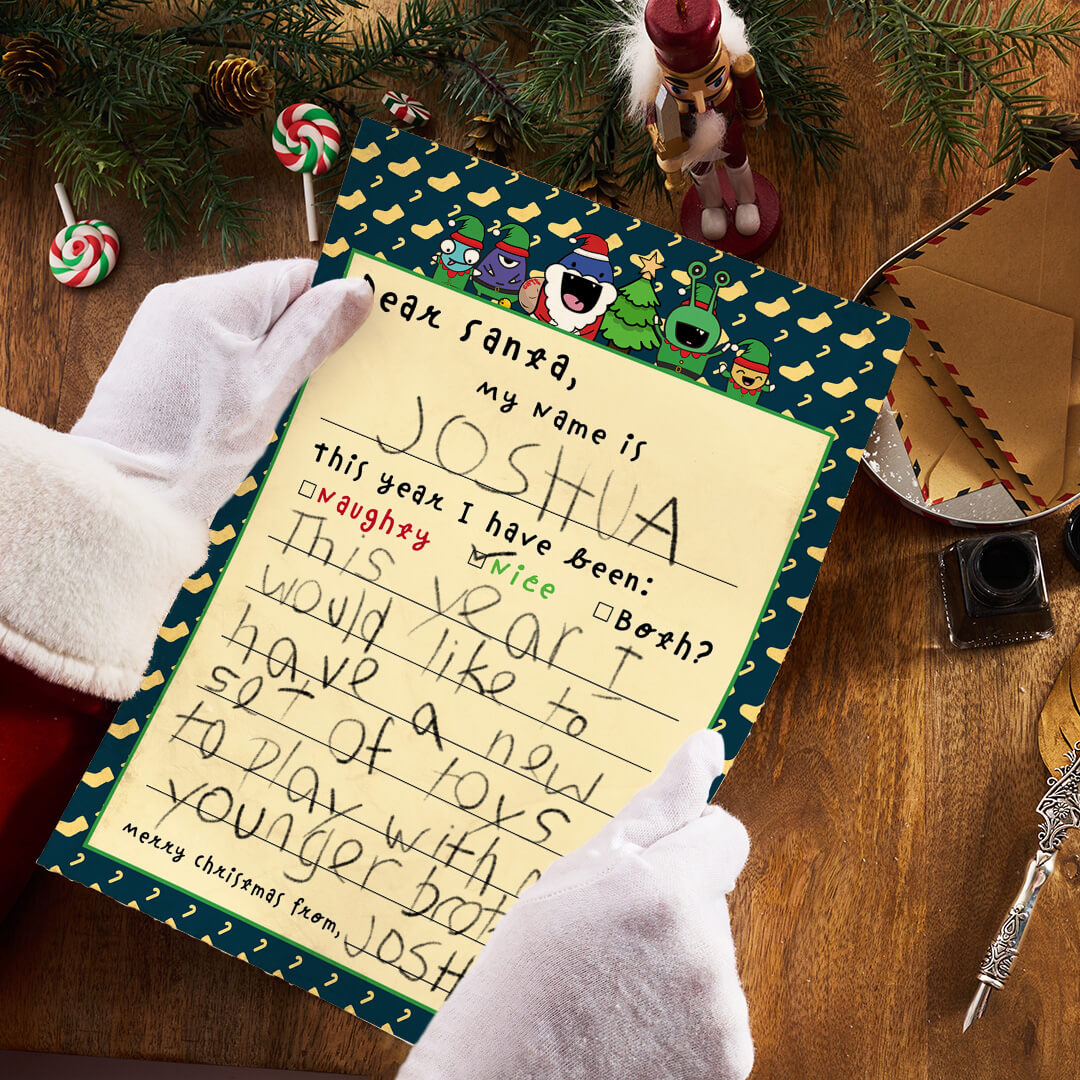 Dear Santa,
My name is
JOSHUA
This year I have been:
Naughty Nice Both?
This year I
would like to
have a new
set of toys
to play with
younger
Merry Christmas from,
JOSH